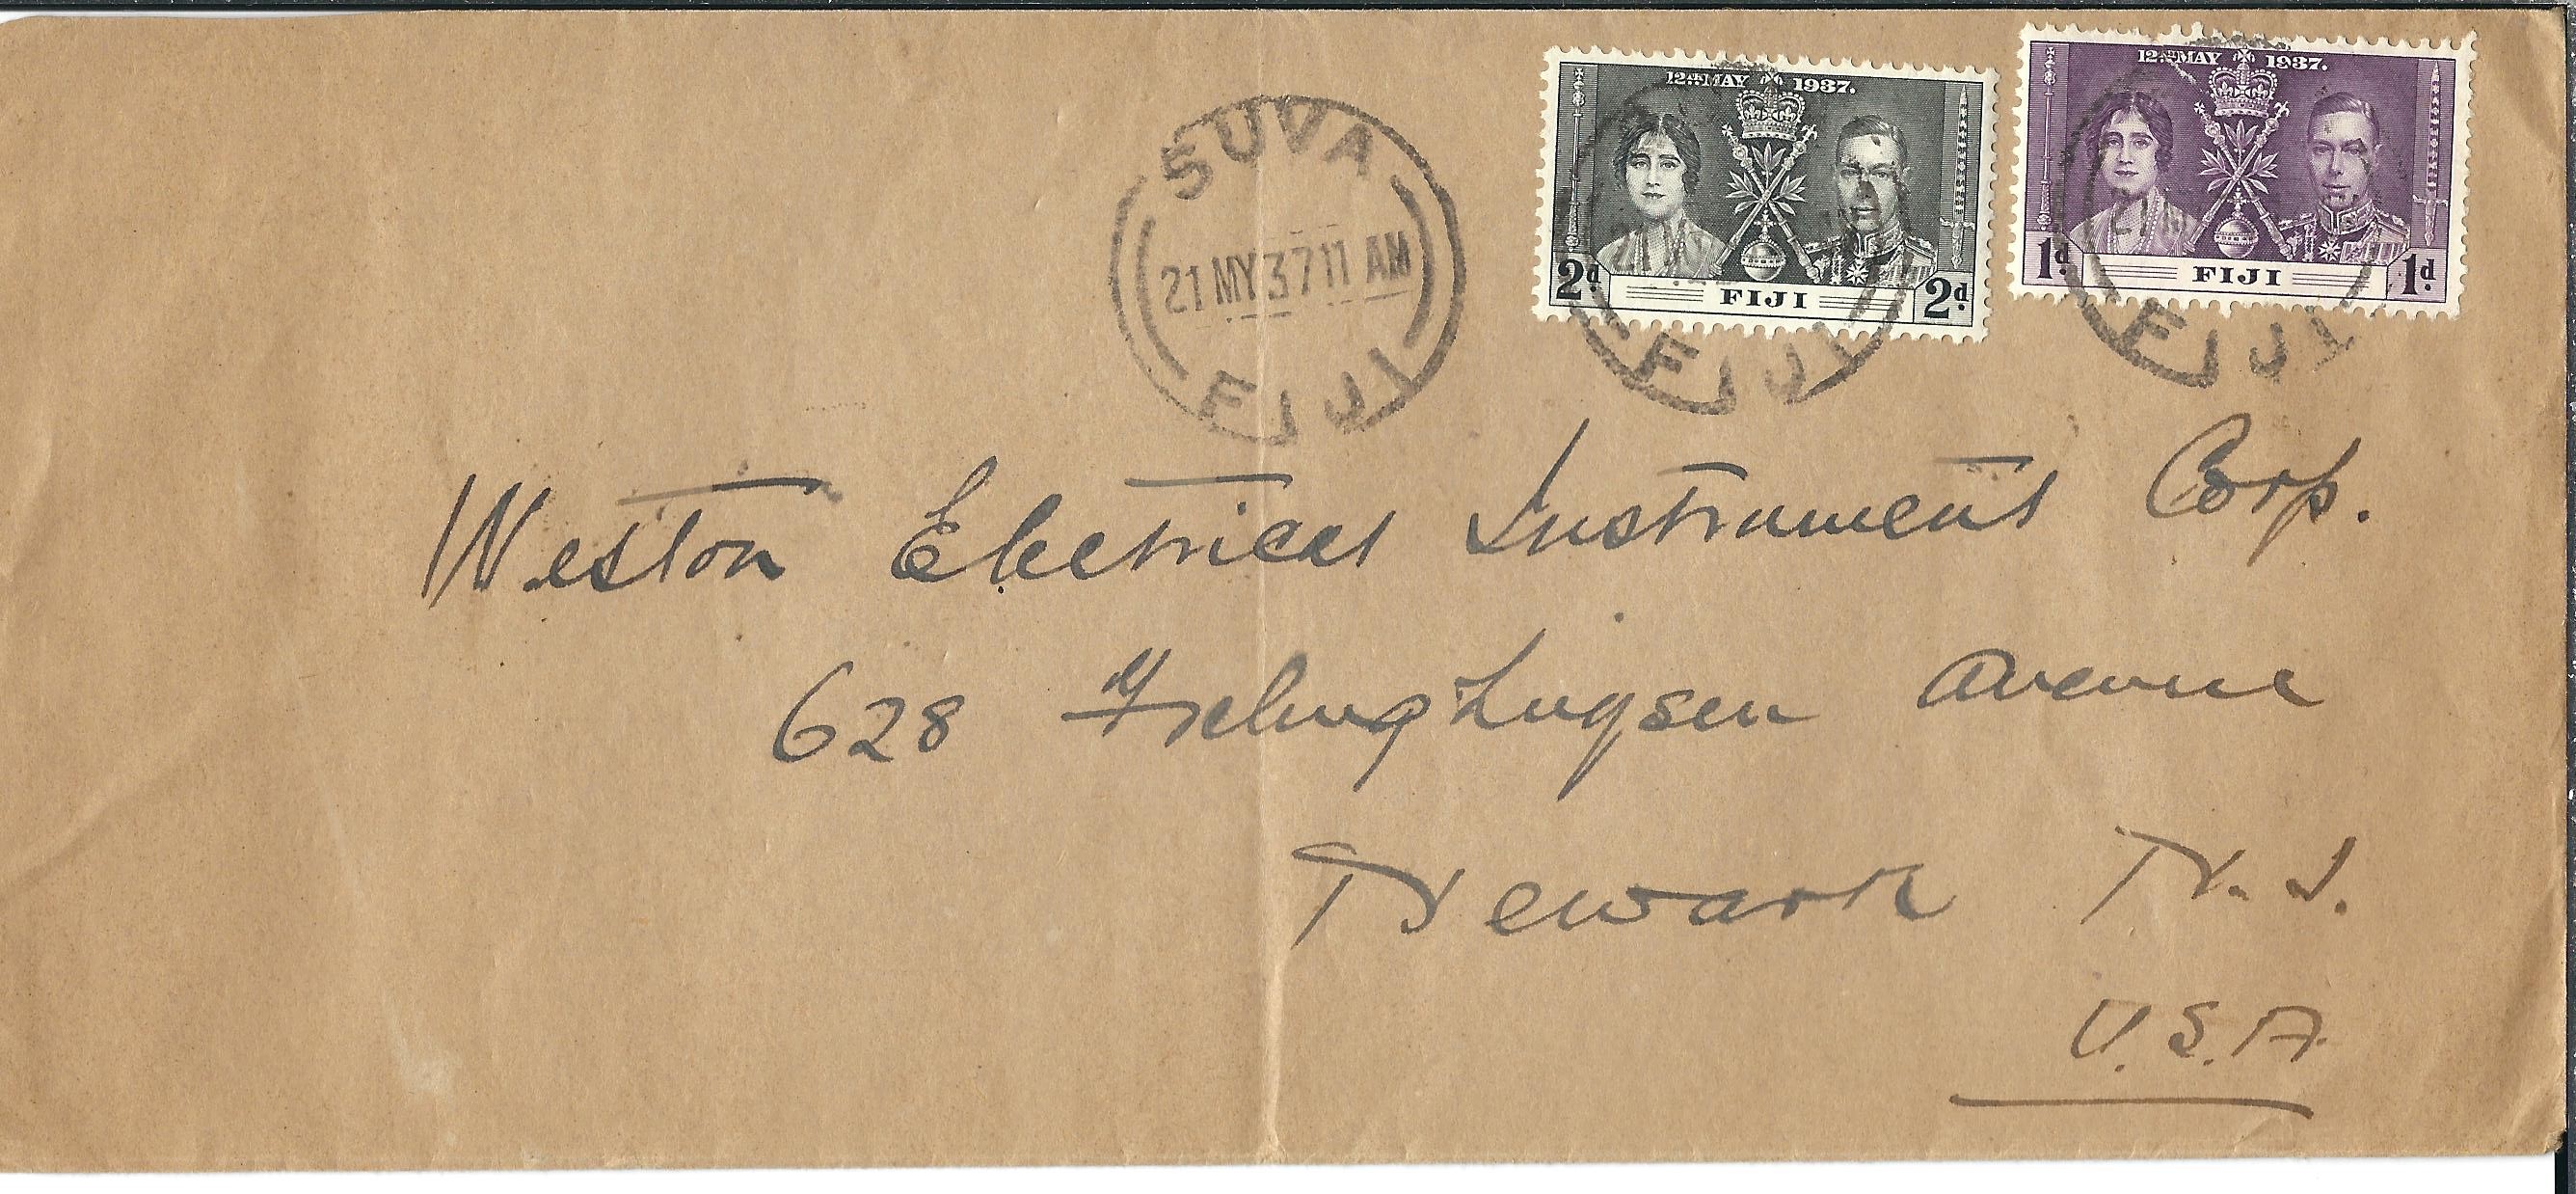 12TH MAY 1937.
2d FIJI 2d
12TH MAY 1937.
1d FIJI 1d
SUVA
21 MY 37 11 AM
FIJI
FIJI
FIJI
Weston Electrical Instrument Corp.
628 Frelinghuysen Avenue
Newark N. J.
U.S.A.